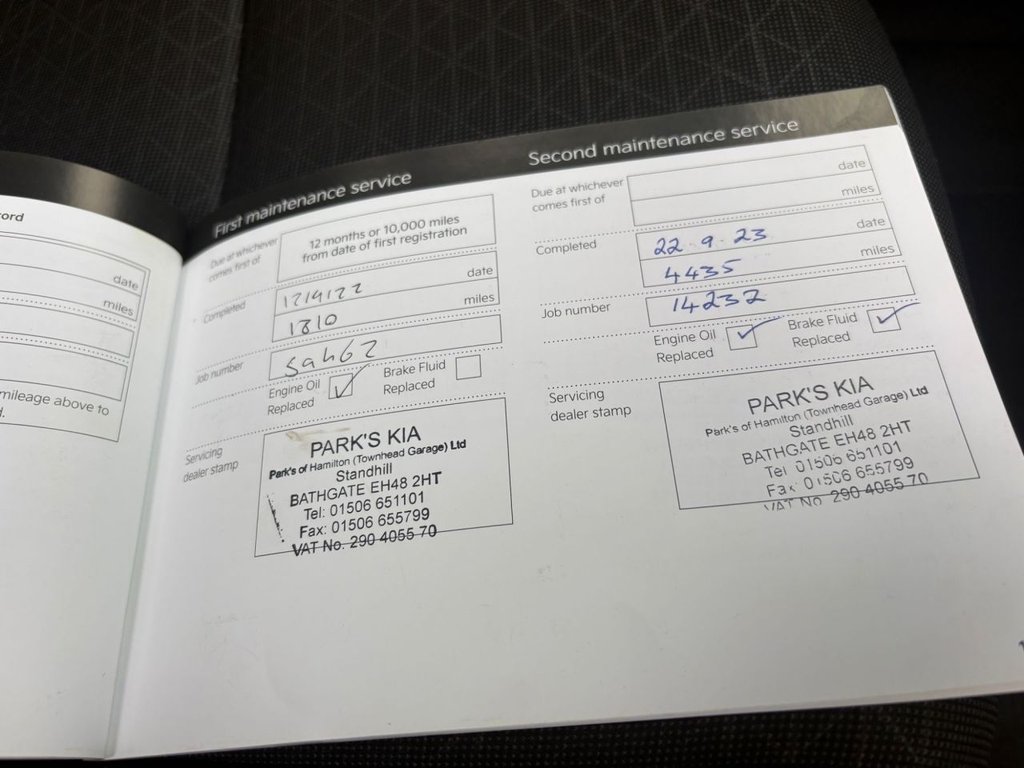 ord
date
miles
mileage above to
d.
First maintenance service
Due at whichever
comes first of
12 months or 10,000 miles
from date of first registration
Completed
date
miles
1810
Job number
Engine Oil
Replaced
Brake Fluid
Replaced
Servicing
dealer stamp
PARK'S KIA
Park's of Hamilton (Townhead Garage) Ltd
Standhill
BATHGATE EH48 2HT
Tel: 01506 651101
Fax: 01506 655799
VAT No. 290 4055 70
Second maintenance service
Due at whichever
comes first of
date
miles
Completed
22.9.23 date
4435 miles
Job number
14232
Engine Oil
Replaced
Brake Fluid
Replaced
Servicing
dealer stamp
PARK'S KIA
Park's of Hamilton (Townhead Garage) Ltd
Standhill
BATHGATE EH48 2HT
Tel 01506 651101
Fax 01506 655799
VAT No 290 4055 70